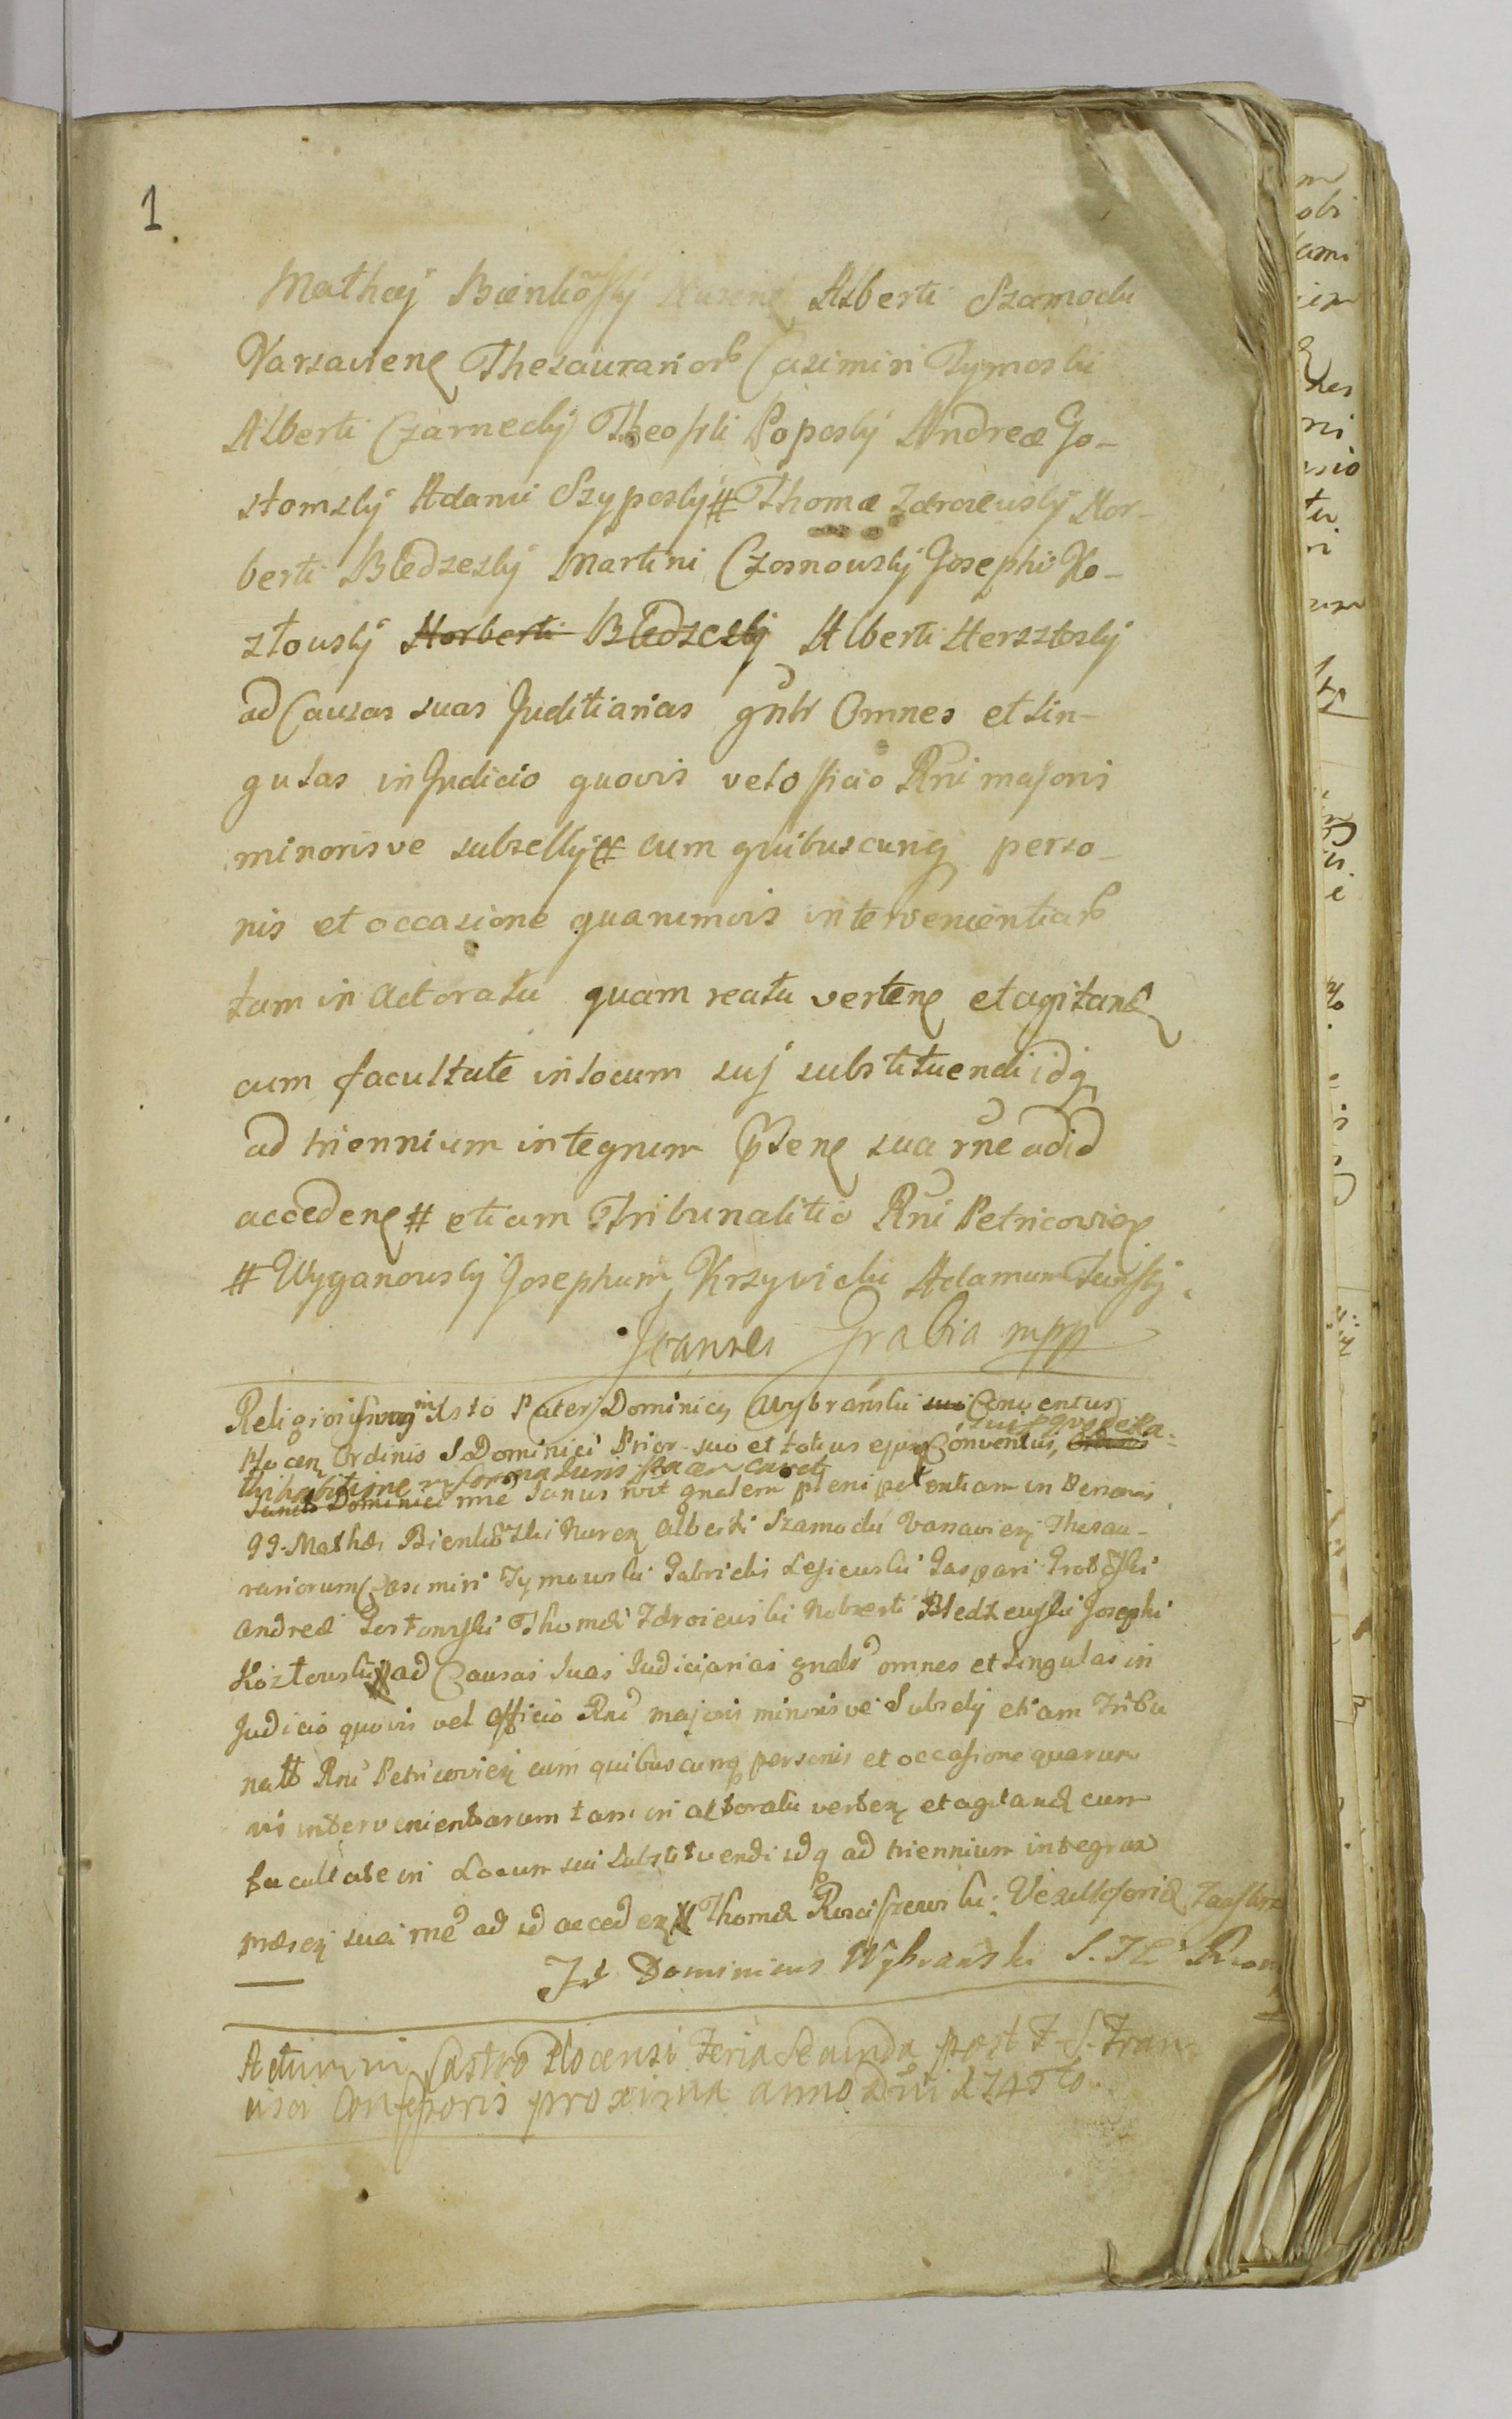 1
Mathæj Bienkõsky Nurenẽ Alberti Szamocki
Varsavienẽ Thesaurarior Casimiri Tymoski
Alberti Czarnecky Theofili Poposky Andreæ Go-
stomsky Adami Szyposky # Thomæ Zdroieusky Nor-
berti Bledzesky Martini Czosnousky Josephi Ko-
złousky Norberti Bledzesky Alberti Hersztosky
ad Causas suas Juditiarias gnlr Omnes et sin-
gulas in Judicio quovis vel officio Rni majoris
minorisve subselly # cum quibuscunq perso-
nis et occasione quarumvis intervenientiar
tam in actoratu quam reatu vertenẽ et agitanẽ
cum facultate in locum suj substituendi idq
ad triennium integrum psenẽ sua rne ad id
accedenẽ # etiam Tribunalitio Rni Petricovieñ
# Wyganowsky Josephum Krzywicki Adamum
Joannes Grabia mpp
Pater Dominicus Wybranski sui Conventus
Plocenẽ Ordinis S Dominici Prior suo et totius ejusq Conventus,
Sancti Dominici rne Janus rvit gnalem plenipotentiam in Personis
GG. Mathæi Bienkowski Nurenẽ Alberti Szamocki Varsavienẽ Thesau-
rariorum Casimiri Tymowski Gabrielis Lesieuski Gaspari
Andreæ Gostomski Thomæ Zdroieuski Norberti Bledzeuski Josephi
Kozłouski # ad Causas suas Judiciarias gnalr omnes et singulas in
Judicio quovis vel officio Rni majoris minorisve Subsely etiam Tribu
nalt Rni Petricovienẽ cum quibuscunq personis et occasione quarum
vis intervenientiarum tam in actoratu vertenẽ et agitandẽ cum
facultate in Locum sui substituendi idq ad triennium integrum
præsenẽ sua rne ad id accedenẽ # Thomæ Rosciszewski
Fr Dominicus Wybranski S. Th
Actum in Castro Plocensi Feria Secunda post F. S. Fran
cisci Confessoris proxima anno Dni